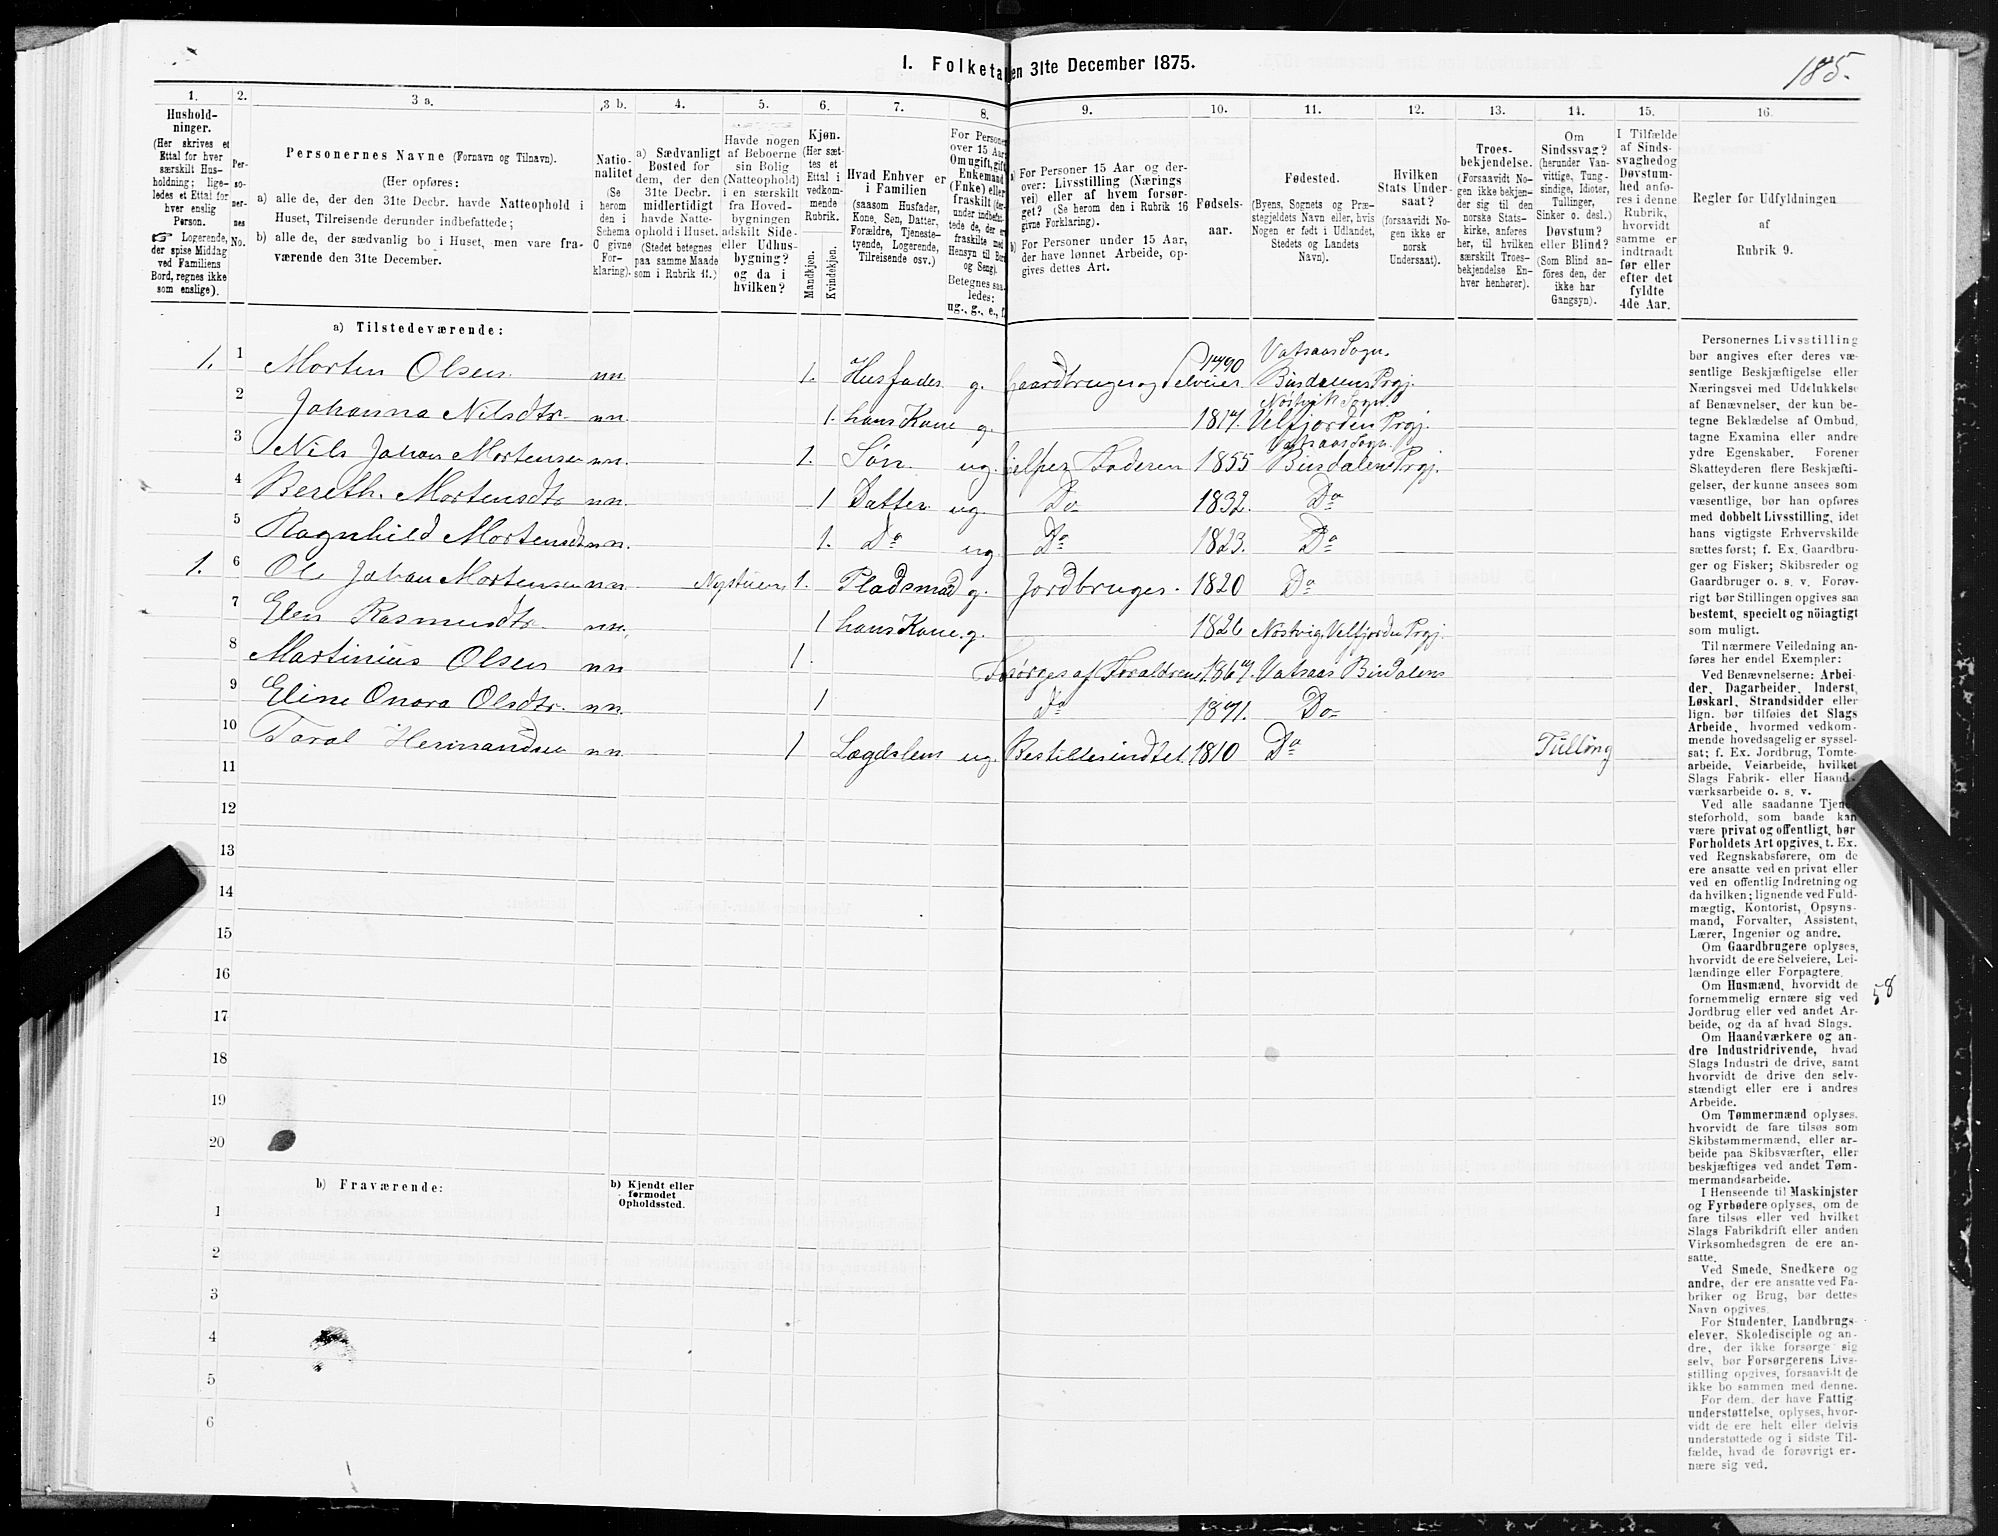 1. Folketa en 31te December 1875.
185.
1.
Hushold-
ninger.
(Her skrives et
Ettal for hver
særskilt Hus-
holdning; lige-
ledes et Ettal for
hver enslig
Person.
☞ Logerende,
der spise Middag
ved Familiens
Bord, regnes ikke
som enslige).
2.
Per-
so-
ner-
nes
No.
3 a.
Personernes Navne (Fornavn og Tilnavn).
(Her opføres:
a) alle de, der den 31te Decbr. havde Natteophold i
Huset, Tilreisende derunder indbefattede;
b) alle de, der sædvanlig bo i Huset, men vare fra-
værende den 31te December.
3 b.
Natio-
nalitet
(Se
herom
den i
Schema
C givne
For-
klaring).
4.
a) Sædvanligt
Bosted for
dem, der den
31te Decbr.
midlertidigt
havde Natte-
ophold i Huset.
(Stedet betegnes
paa samme Maade
som i Rubrik 11.)
5.
Havde nogen
af Beboerne
sin Bolig
(Natteophold)
i en særskilt
fra Hoved-
bygningen
adskilt Side-
eller Udhus-
bygning?
og da i
hvilken?
6.
Kjøn.
(Her sæt-
tes et
Ettal i
vedkom-
mende
Rubrik.
Mandkjøn.
Kvindekjøn.
7.
Hvad Enhver er
i Familien
(saasom Husfader,
Kone, Søn, Datter,
Forældre, Tjeneste-
tyende, Logerende,
Tilreisende osv.)
8.
For Personer
over 15 Aar:
Om ugift, gift,
Enkemand
(Enke) eller
fraskilt (der-
under indbefat-
tede de, der ere
fraskilte med
Hensyn til Bord
og Seng).
Betegnes saa-
ledes:
ug., g., e., f.
9.
a) For Personer 15 Aar og der-
over: Livsstilling (Nærings
vei) eller af hvem forsør-
get? (Se herom den i Rubrik 16
givne Forklaring).
b) For Personer under 15 Aar,
der have lønnet Arbeide, op-
gives dettes Art.
10.
Fødsels-
aar.
11.
Fødested.
(Byens, Sognets og Præ-
stegjeldets Navn eller, hvis
Nogen er født i Udlandet,
Stedets og Landets
Navn).
12.
Hvilken
Stats Under-
saat?
(forsaavidt No-
gen ikke er
norsk
Undersaat).
13.
Troes-
bekjendelse.
(Forsaavidt No-
gen ikke bekjen-
der sig til den
norske Stats-
kirke, anføres
her, til hvilken
særskilt Troes-
bekjendelse En-
hver henhører).
14.
Om
Sindssvag?
(herunder Van-
vittige, Tung-
sindige, Idioter,
Tullinger,
Sinker o. desl.)
Døvstum?
eller Blind?
(Som Blind an-
føres den, der
ikke har
Gangsyn).
15.
I Tilfælde
af Sinds-
svaghed og
Døvstum-
hed anfø-
res i denne
Rubrik,
hvorvidt
samme er
indtraadt
før eller
efter det
fyldte
4de Aar.
16.
Regler for Udfyldningen
af
Rubrik 9.
a) Tilstedeværende:
1. 1 Morten Olsen nn. 1. Husfader g. Gaardbruger og Selveier 1790 Vatsaas Sogn. Bindalens Prgj.
2 Johanna Nilsdtr. nn. 1. hans Kone g. 1817. Nøstvik Sogn. Velfjorden Prgj.
3 Nils Johan Mortensen nn. 1. Søn ug. hjelper Faderen 1855 Vatsaas Sogn. Bindalens Prgj.
4 Bereth. Mortensdtr nn. 1 Datter ug. Do 1832. Do
5 Ragnhild Mortensdt nn. 1. Do ug. Do 1823. Do
1. 6 Ole Johan Mortensen nn. Nystuen 1. Pladsmad g. Jordbruger. 1820 Do
7 Elen Rasmusdtr. nn. 1 hans Kone. g. 1826 Nøstvig Velfjorden Prgj.
8 Martinius Olsen nn 1. Forsørges af Foraldrene 1867. Vatsaas Bindalens
9 Eline Onora Olsdtr. nn. 1 Do 1871. Do
10 Taral Hermandsen nn. 1 Lægdslem ug. Bestiller indtet. 1810 Do Tulling
11
12
13
14
15
16
17
18
19
20
b) Fraværende:
b) Kjendt eller
formodet
Opholdssted.
1
2
3
4
5
6
Personernes Livsstilling
bør angives efter deres væ-
sentlige Beskjæftigelse eller
Næringsvei med Udelukkelse
af Benævnelser, der kun be-
tegne Beklædelse af Ombud,
tagne Examina eller andre
ydre Egenskaber. Forener
Skatteyderen flere Beskjæfti-
gelser, der kunne ansees som
væsentlige, bør han opføres
med dobbelt Livsstilling, idet
hans vigtigste Erhvervskilde
sættes først; f. Ex. Gaardbru-
ger og Fisker; Skibsreder og
Gaardbruger o. s. v. Forøv-
rigt bør Stillingen opgives saa
bestemt, specielt og nøiagtigt
som muligt.
Til nærmere Veiledning an-
føres her endel Exempler:
Ved Benævnelserne: Arbei-
der, Dagarbeider, Inderst,
Løskarl, Strandsidder eller
lign. bør tilføies det Slags
Arbeide, hvormed vedkom-
mende hovedsagelig er syssel-
sat; f. Ex. Jordbrug, Tomte-
arbeide, Veiarbeide, hvilket
Slags Fabrik- eller Haand-
værksarbeide o. s. v.
Ved alle saadanne Tjene-
steforhold, som baade kan
være privat og offentligt, bør
Forholdets Art opgives, t. Ex.
ved Regnskabsførere, om de
ere ansatte ved en privat eller
ved en offentlig Indretning og
da hvilken; lignende ved Fuld-
mægtig, Kontorist, Opsyns-
mand, Forvalter, Assistent,
Lærer, Ingeniør og andre.
Om Gaardbrugere oplyses,
hvorvidt de ere Selveiere, Lei-
lændinge eller Forpagtere.
Om Husmænd, hvorvidt de
fornemmelig ernære sig ved
Jordbrug eller ved andet Ar-
beide, og da af hvad Slags.
Om Haandværkere og an-
dre Industridrivende, hvad
Slags Industri de drive, samt
hvorvidt de drive den selv-
stændigt eller ere i andres
Arbeide.
Om Tømmermænd oplyses,
hvorvidt de fare tilsøs som
Skibstømmermænd, eller ar-
beide paa Skibsværfter, eller
beskjæftiges ved andet Tøm-
mermandsarbeide.
I Henseende til Maskinister
og Fyrbødere oplyses, om de
fare tilsøs eller ved hvilket
Slags Fabrikdrift eller anden
Virksomhedsgren de ere an-
satte.
Ved Smede, Snedkere og
andre, der ere ansatte ved Fa-
briker og Brug, bør dettes
Navn opgives.
For Studenter, Landbrugs-
elever, Skoledisciple og an-
dre, der ikke forsørge sig
selv, bør Forsørgerens Livs-
stilling opgives, forsaavidt de
ikke bo sammen med denne.
For dem, der have Fattig-
understøttelse, oplyses, hvor-
vidt de ere helt eller delvis
understøttede og i sidste Til-
fælde, hvad de forøvrigt er-
nære sig ved.
58